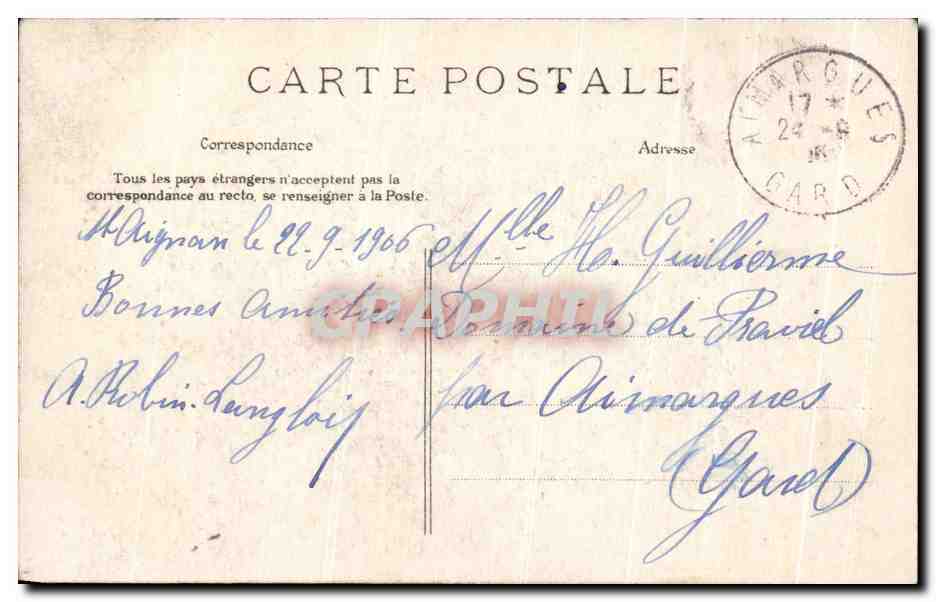 CARTE POSTALE
AIMARGUES
17 *
24 -9
GARD
Correspondance
Tous les pays étrangers n'acceptent pas la
correspondance au recto, se renseigner à la Poste.
St Aignan le 22-9-1906
Bonnes amitiés
A. Robin-Langlois
Adresse
Mlle Guillierme
Domaine de Praviel
par Aimargues
(Gard)
CPAPHIL